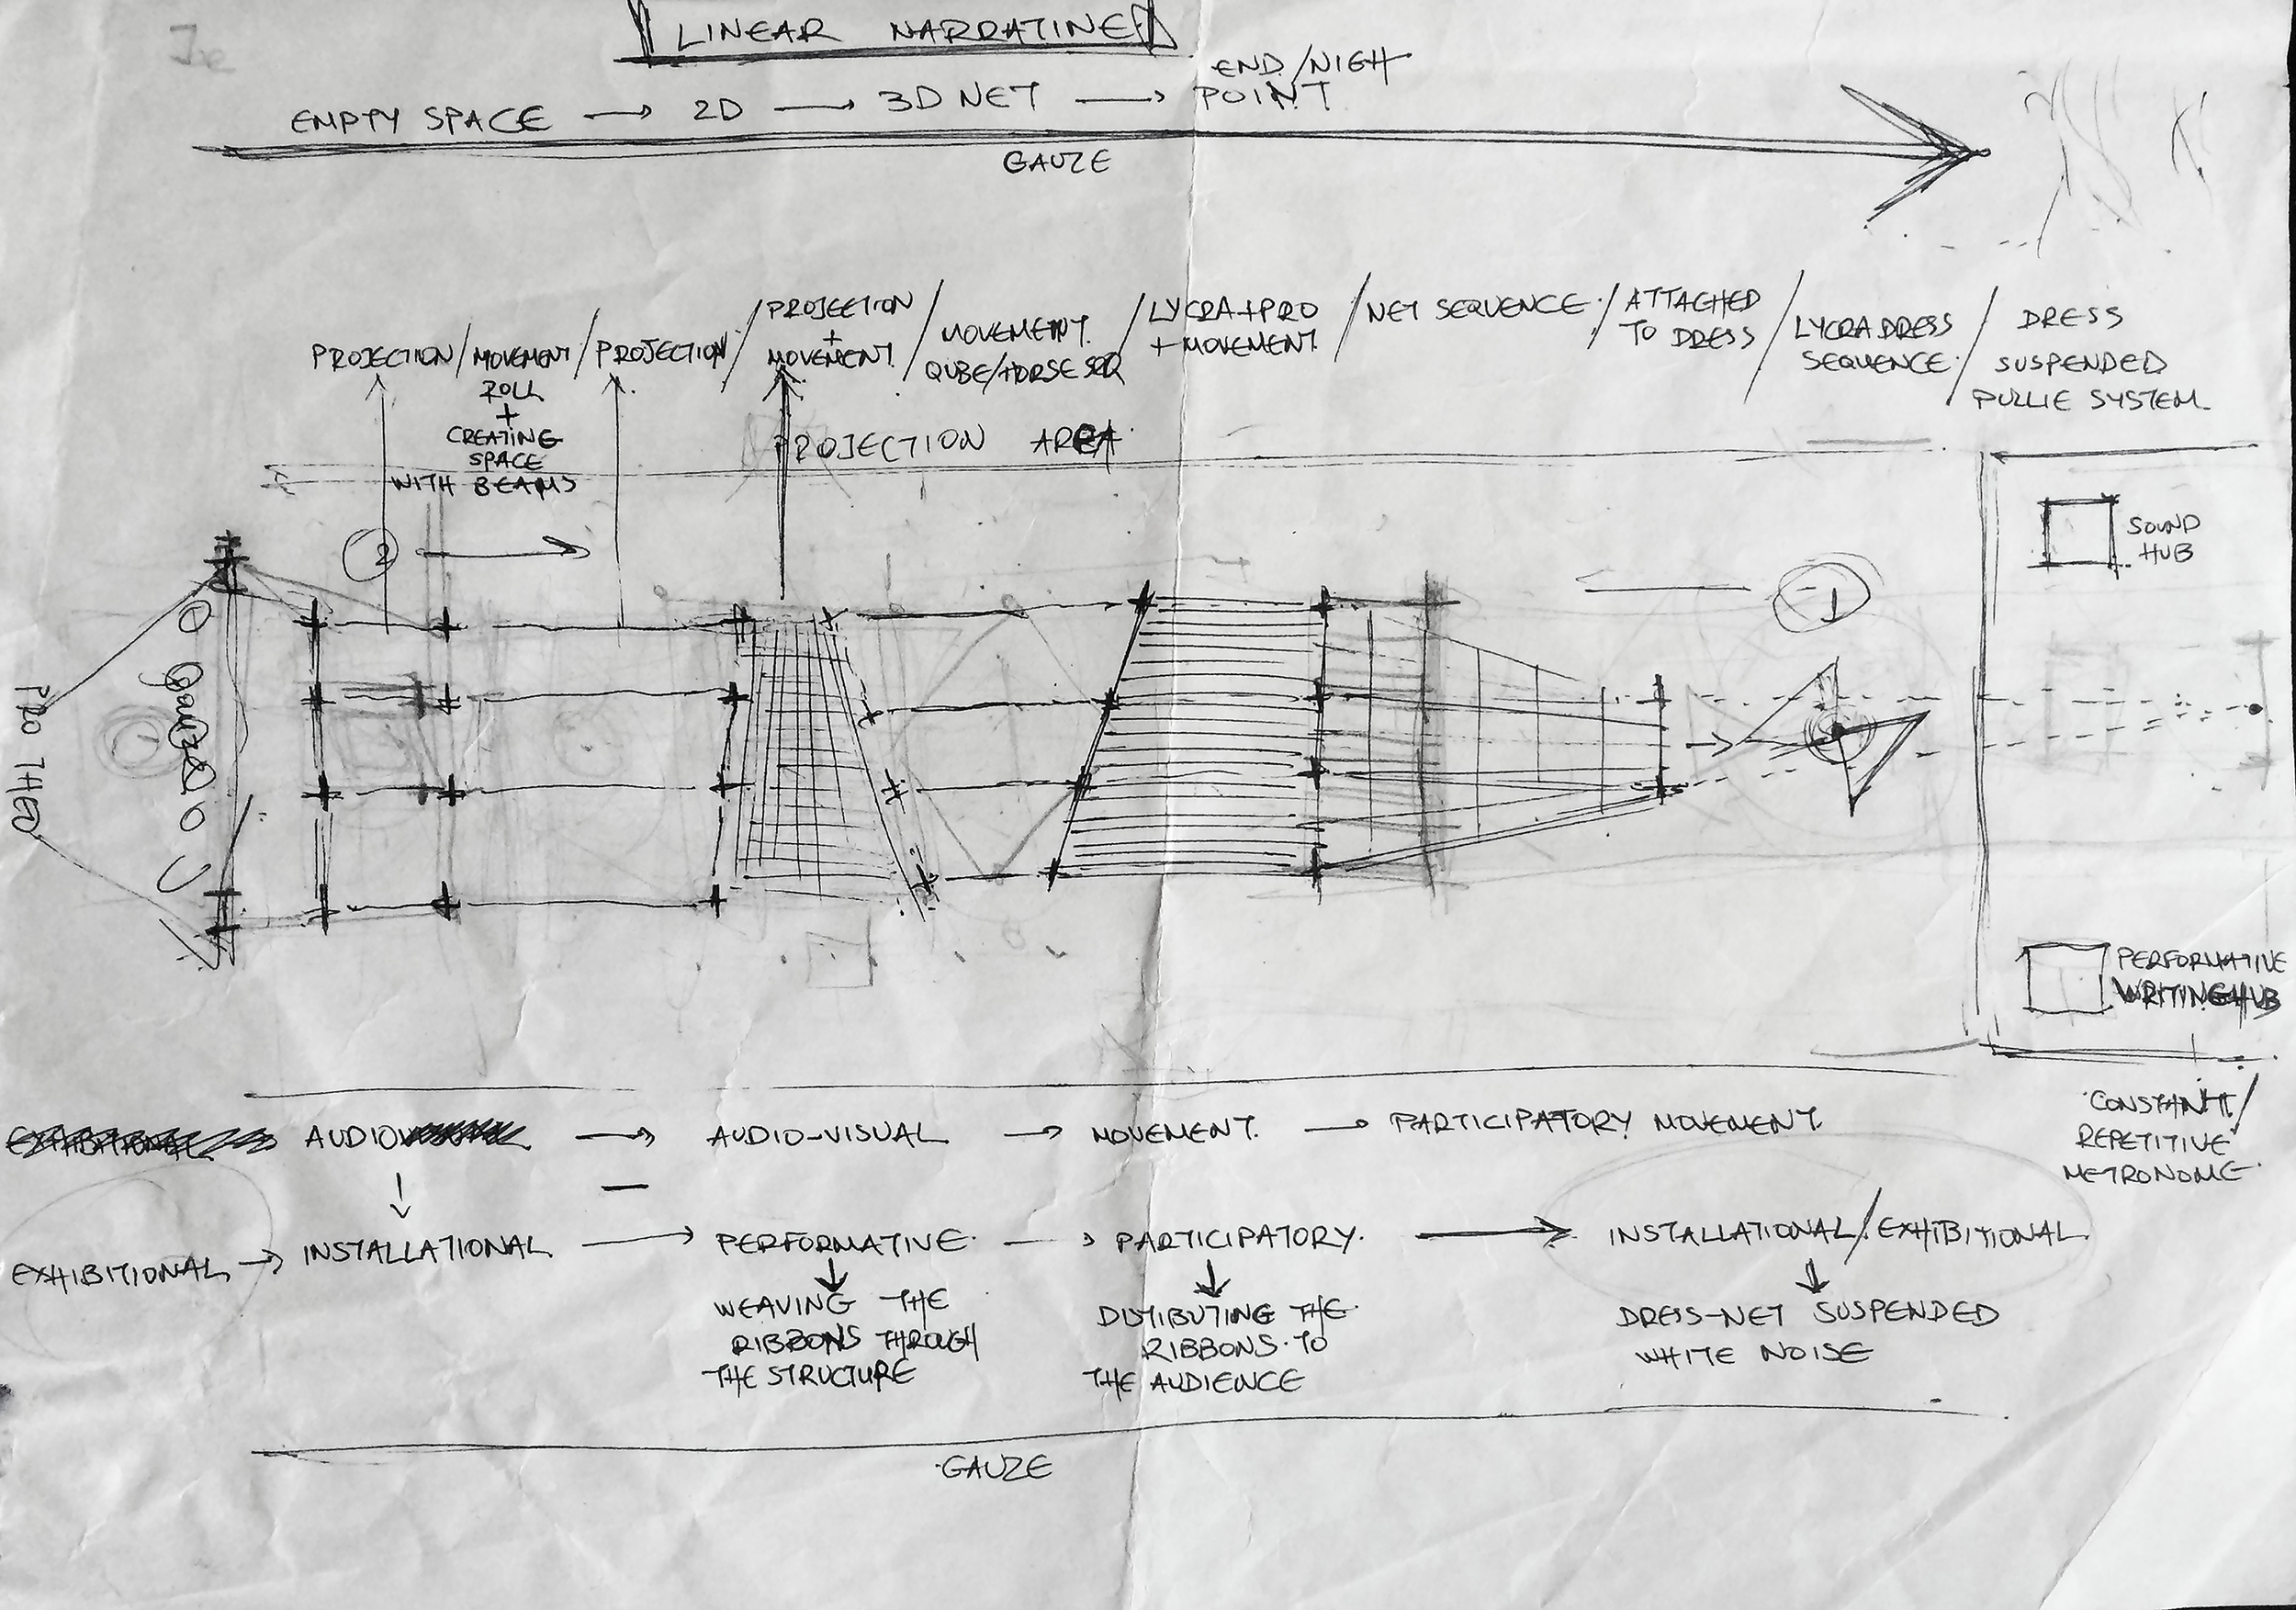 LINEAR NARRATINE
EMPTY SPACE → 2D → 3D NET → END/NIGH POINT
GAUZE
PROJECTION / MOVEMENT / PROJECTION / PROJECTION + MOVEMENT / MOVEMENT. QUBE/HORSE SEQ / LYCRA + PRO + MOVEMENT / NET SEQUENCE. / ATTACHED TO DRESS / LYCRA DRESS SEQUENCE. / DRESS SUSPENDED PULLIE SYSTEM.
ROLL
+
CREATING
SPACE
WITH BEAMS
PROJECTION AREA
2
1
SOUND
HUB
gauze
PERFORMATIVE
WRITING HUB
AUDIO → AUDIO-VISUAL → MOVEMENT. → PARTICIPATORY MOVEMENT.
CONSTANT/
REPETITIVE
METRONOME.
EXHIBITIONAL → INSTALLATIONAL → PERFORMATIVE. → PARTICIPATORY. → INSTALLATIONAL/EXHIBITIONAL.
WEAVING THE
RIBBONS THROUGH
THE STRUCTURE
DISTIBUTING THE
RIBBONS TO
THE AUDIENCE
DRESS-NET SUSPENDED
WHITE NOISE
GAUZE